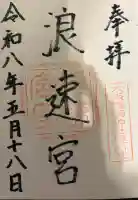 奉拝
浪速宮
令和八年五月十八日